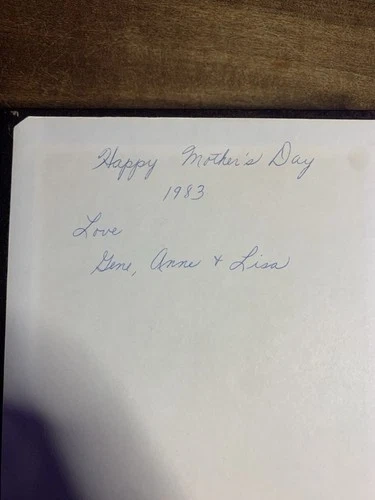 Happy Mother's Day
1983
Love
Gene, Anne + Lisa